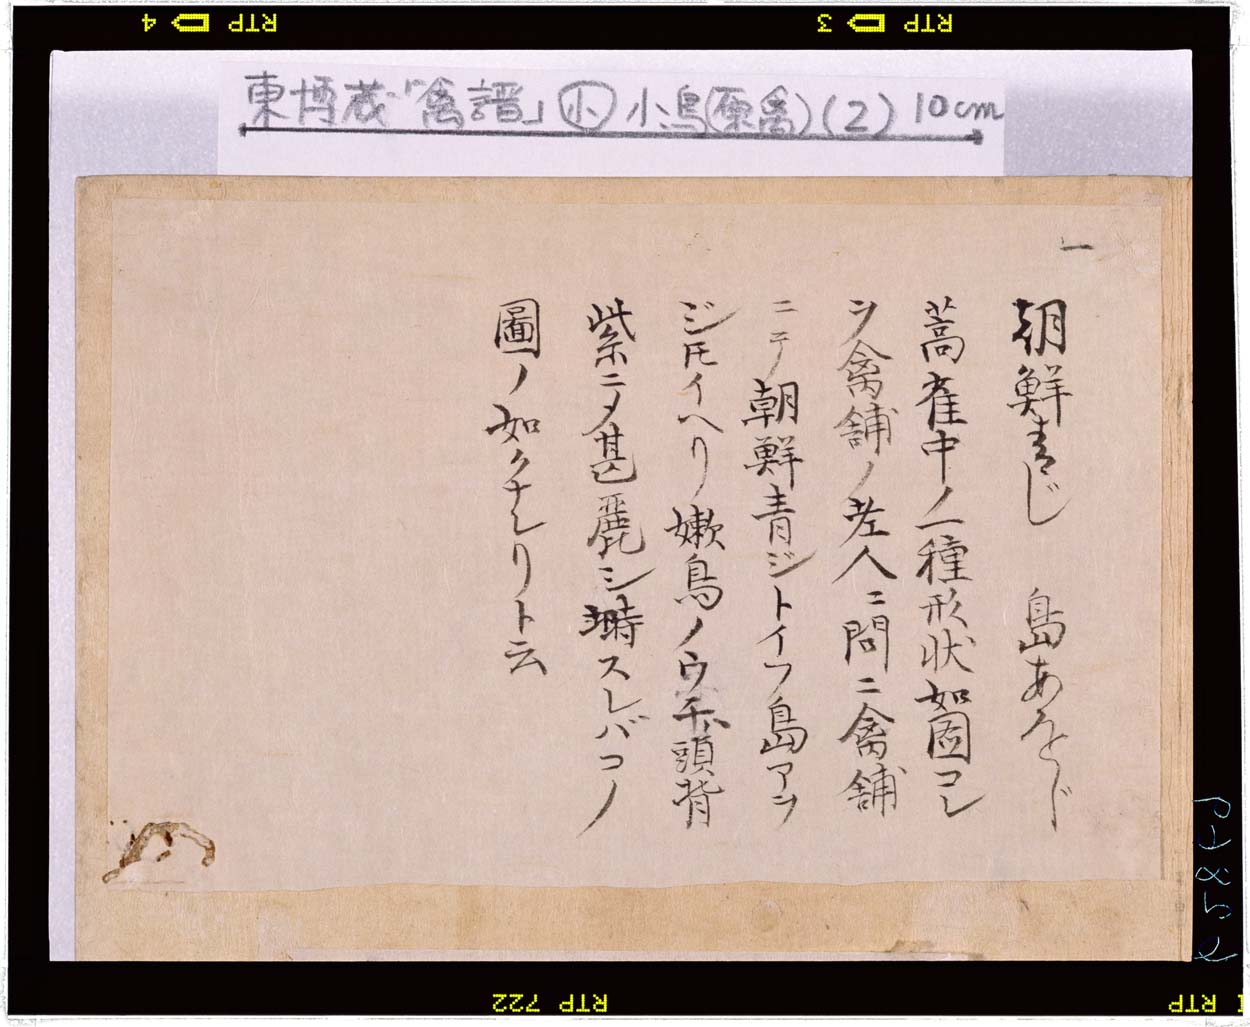 RTP 3
RTP 4
東博蔵「禽譜」㋛小鳥(原禽)(2) 10cm
一
朝鮮青じ 島あをじ
蒿雀中ノ一種形状如圖コレ
ヲ禽舗ノ老人ニ問ニ禽舗
ニテ朝鮮青ジトイフ島アヲ
ジトモイヘリ嫩鳥ノウチハ頭背
紫ニメ甚麗シ時スレバコノ
圖ノ如クナレリト云
RTP 722
RTP